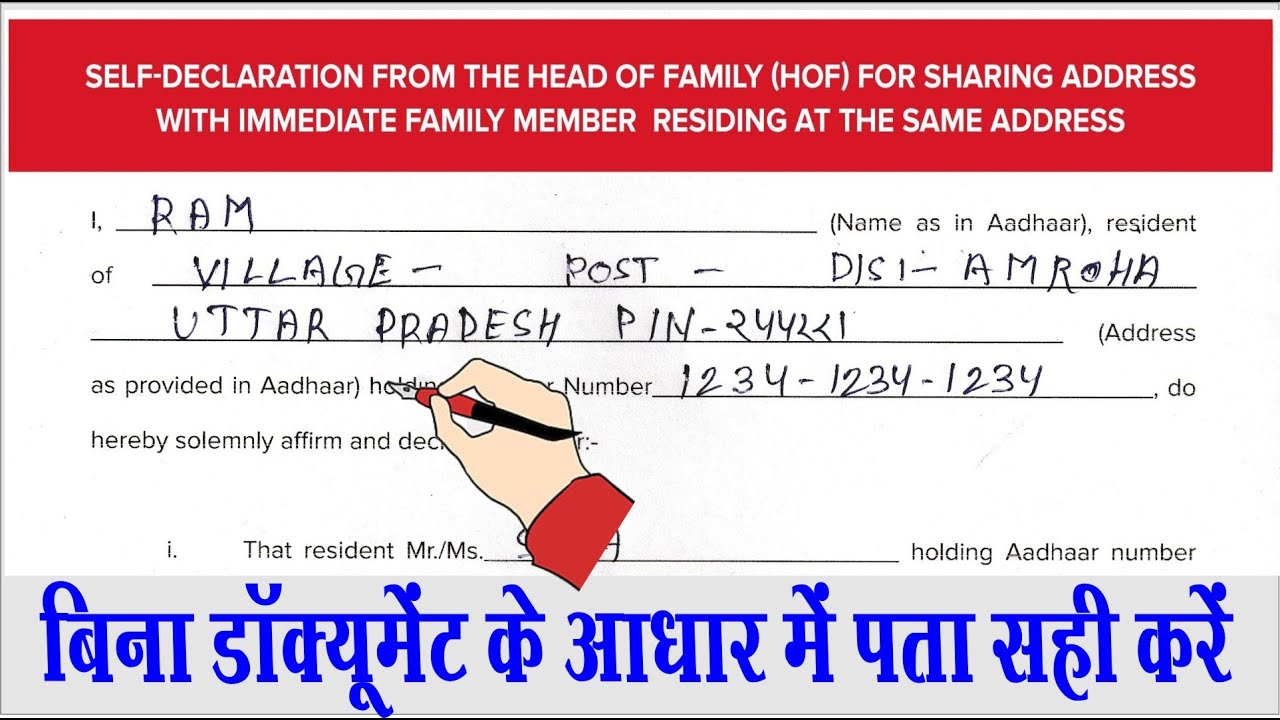 SELF-DECLARATION FROM THE HEAD OF FAMILY (HOF) FOR SHARING ADDRESS
WITH IMMEDIATE FAMILY MEMBER RESIDING AT THE SAME ADDRESS
I, RAM (Name as in Aadhaar), resident
of VILLAGE - POST - DIST - AMROHA
UTTAR PRADESH PIN - 244221 (Address
as provided in Aadhaar) Number 1234-1234-1234, do
hereby solemnly affirm and :-
i. That resident Mr./Ms. holding Aadhaar number
बिना डॉक्यूमेंट के आधार में पता सही करें